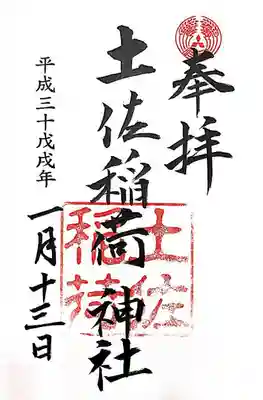 奉拝
土佐稲荷神社
土佐
稲荷
平成三十戊戌年
一月十三日